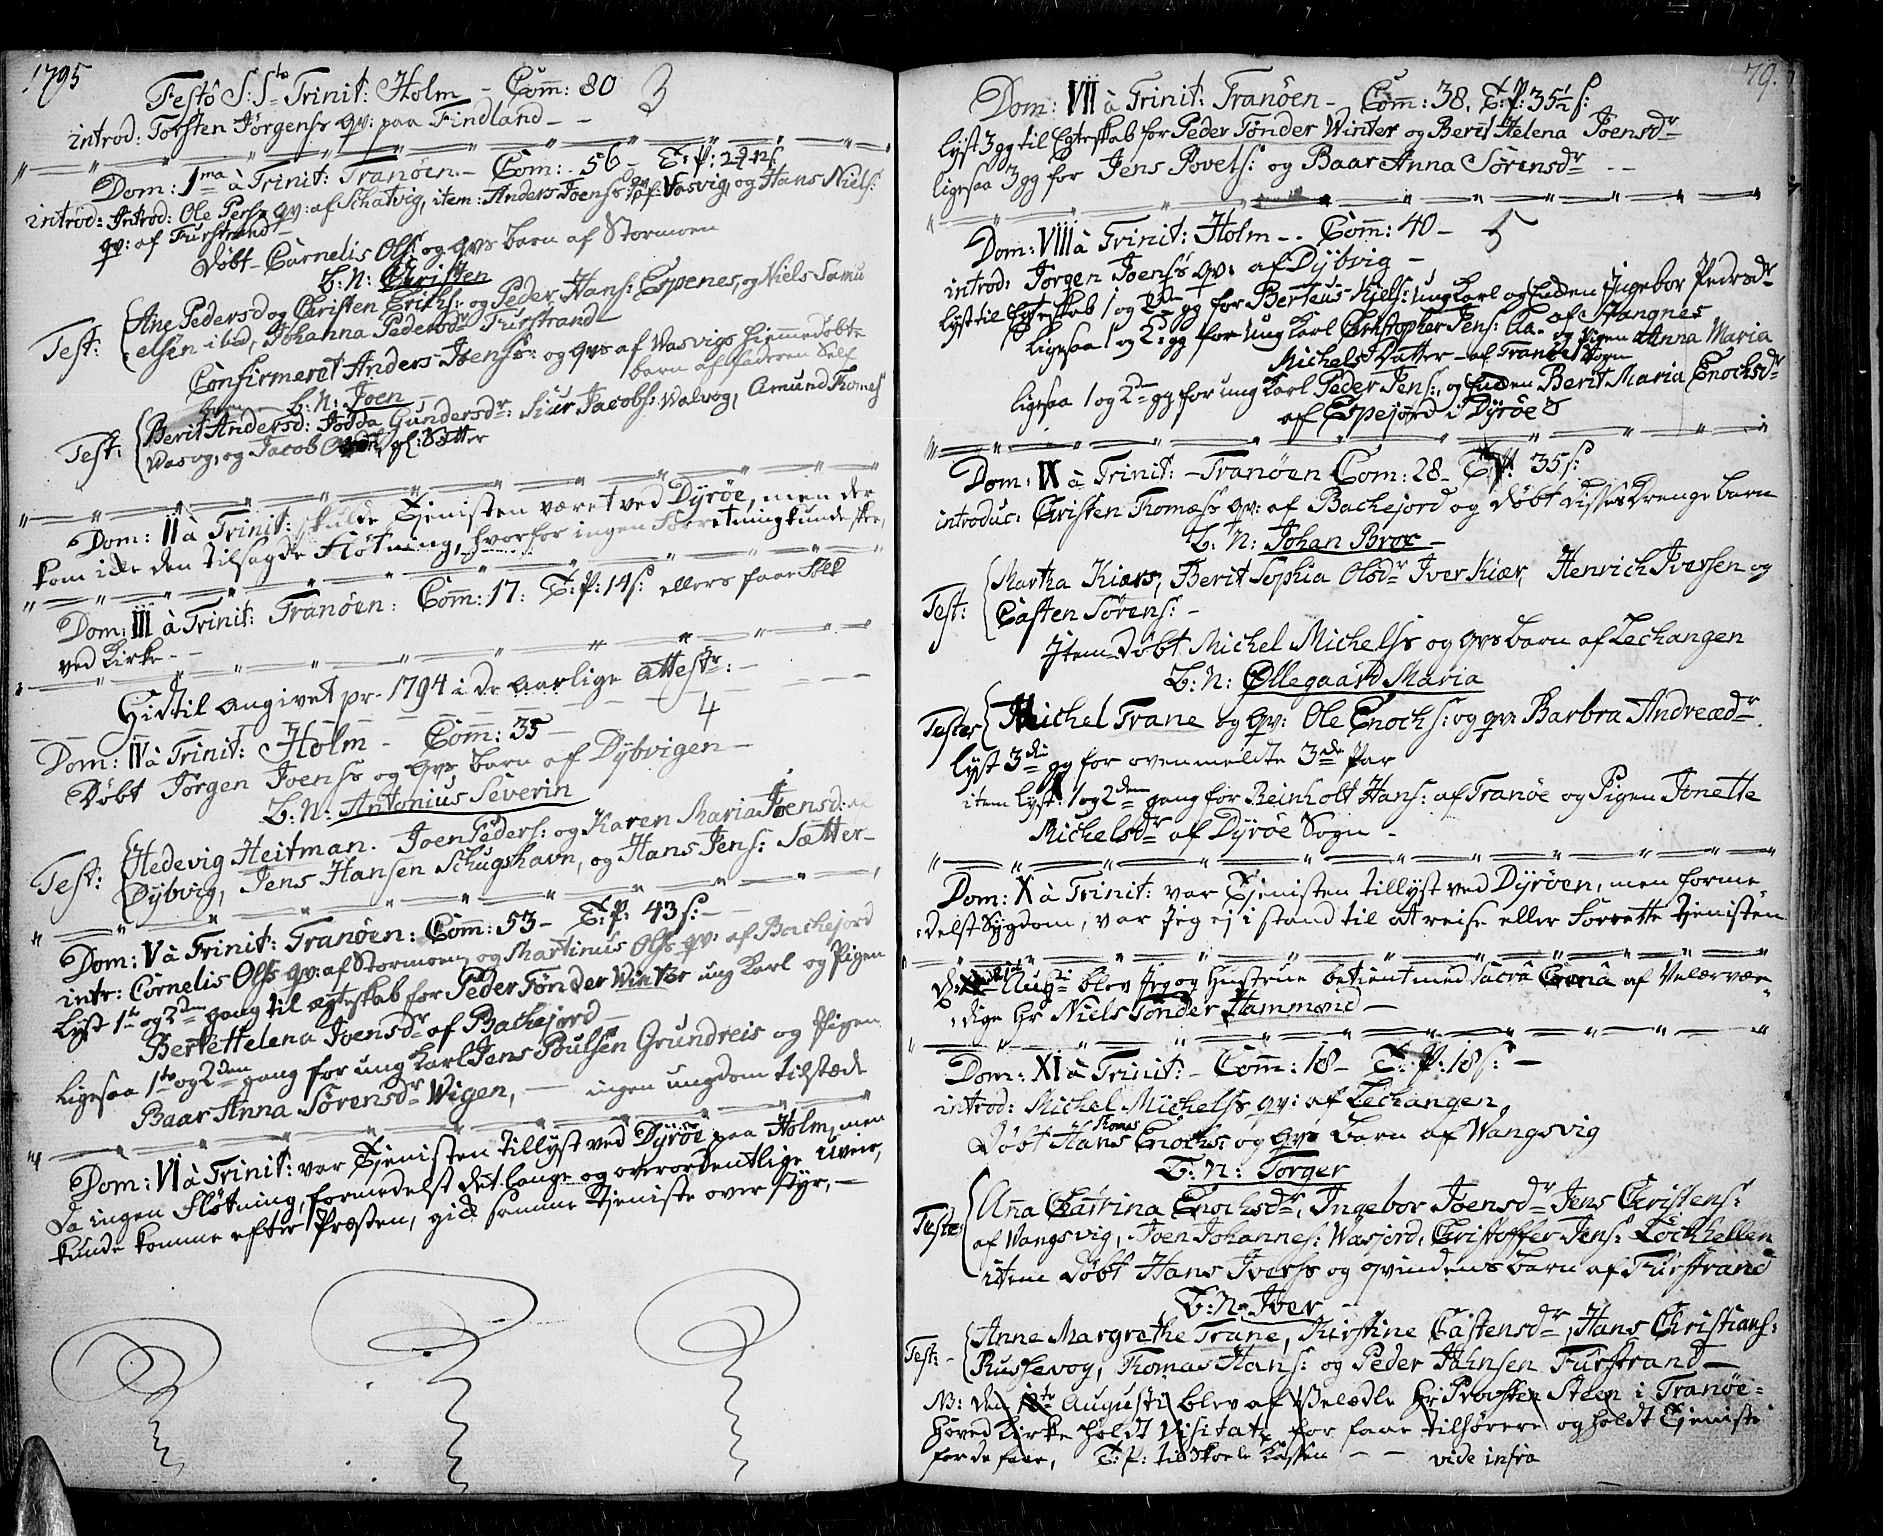 1795
Festô S:S:tæ Trinit: Holm - Com̄: 80 3
introd: Torsten Jørgenss qv: paa Findland - -
Dom: 1ma à Trinit: Tranöen - Com: 56 - T:P:
introd: Introd: Ole Perss qv: af Schatvig, item: Anders Joenss qv: af: Vasvig, og Hans Niels:
qv: af Furstrand -
Döbt - Cornelis Olss: og qvs barn af Stormoen
B:N: Christen
Test: Ane Pedersd og Christen Erichs: og Peder Hans: Espenes, og Niels Samu
elsen ibid, Johanna Pedersdr Furstrand -
Confirmeret Anders Joenss: og qvs af Vasvigs hiemmedöbte
barn af faderen Self
B:N: Joen
Test: Berit Andersd: Jodda Gundersdr: Siur Jacobs: Valvog, Amund Thomes
Vasvg, og Jacob Sætter
Dom: II à Trinit: skulde Tienisten været ved Dyröe, men der
kom icke den tilsagde Flötning, hvorfor ingen Forretning kunde skee,
Dom: III à Trinit: Tranöen: Com̄: 17: T:P: 14 s: ellers faae Folk
ved Kirke - -
Hidtil angivet pr. 1794 i de aarlige Attestr: -
4
Dom: IV à Trinit: Holm - Com̄: 35 -
Döbt Jørgen Joenss og qvs barn af Dybvigen -
B:N: Antonius Severin
Test: Hedevig Heitman. Joen Peders: og Karen Maria Joensd: af
Dybvig, Jens Hansen Schugshavn, og Hans Jens: Sætter -
Dom: V à Trinit: Tranöen: Com̄: 53 - T:P: 43 s: -
intr: Cornelis Olss qv: af Stormoen, og Martinus Olss qv: af Bachejord
Lyst 1te og 2den gang til ægteskab for Peder Tönder Winter ung Karl og Pigen
Berett Helena Joensdr af Bachejord -
Ligesaa 1te og 2den gang for ung Karl Jens Poulsen Grundreis og Pigen
Baar Anna Sörensdr Wigen, - ingen ungdom tilstæde
Dom: VI à Trinit: var Tienisten tillyst ved Dyröe paa Holm, men
da ingen Flötning, formedelst det lange og overordentlige Uveir,
kunde komme efter Præsten, gick samme Tieniste over Styr, -
79.
Dom: VII à Trinit: Tranöen - Com̄: 38. T:P: 35½ s:
Lyst 3 gg til Egteskab for Peder Tönder Winter og Berit Helena Joensdr
ligesaa 3 gg for Jens Povels: og Baar Anna Sörensdr - -
Dom: VIII à Trinit: Holm - . Com̄: 40 - 5
introd: Jørgen Joenss qv: af Dybvig -
Lyst til Egteskab 1 og 2de gg for Berteus Niels: ung Karl og Enken Ingebor Pedrsdr
af Stangnes
Ligesaa 1 og 2: gg for ung Karl Christopher Jens: Aa- og Pigen Anna Maria
Michels Datter - af Tranöe Sogn
ligesaa 1 og 2de gg for ung Karl Peder Jens:, og Enken Berit Maria Enochsdr
af Espejord i Dyröe S
Dom: IX à Trinit: - Tranöen Com: 28 - T:P: 35 s:
introduc: Christen Thomæss qv: af Bachejord og döbt disses Drengebarn
B:N: Johan Broc -
Test: Martha Kiærs, Berit Sophia Olsdr Iver Kiær, Henrich Iversen og
Casten Sörens: -
Item Döbt Michel Michelss og qvs barn af Lechangen
B:N: Øllegaard Maria
Testes Michel Trane og qv: Ole Enochs: og qv: Barbra Andreædr.
Lyst 3die gg for ovenmeldte 3de Par
item Lyst: 1 og 2den gang for Reinholt Hans: af Tranöe og Pigen Jonette
Michelsdr af Dyröe Sogn -
Dom: X à Trinit: var Tienisten tillyst ved Dyröen, men forme,
,delst Sygdom, var jeg ej i stand til at reise eller Forrette Tienisten
D: Augti blev Jeg og Hustrue betient med Sacra Coena af Velærvær,
,dige Hr Niels Tönder Hammond -
Dom: XI à Trinit: - Com̄: 18 - T:P: 18 s: -
introd: Michel Michelss qv: af Lechangen,
Döbt Hans Thomas Enochs: og qvs barn af Wangsvig
B:N: Torger
Testes Ana Chatrina Enochsdr, Ingebor Joensdr Jens Christens:
af Wangsvig, Joen Johannes: Wæsjord, Christoffer Jens: Lochhellen
item Döbt Hans Iverss og qvindens barn af Fürstrand
B:N: Iver -
Test: - Anne Margrethe Trane, Kirstine Castensdr, Hans Christians:
Russevog, Thomas Hans: og Peder Johnsen Fürstrand -
NB: den 18te Augusti blev af Velædle Hr Provsten Steen i Tranöe=
Hoved Kirke holdt Visitatz for faae Tilhörere og holdt Tieniste
for de faae, T:P: til Skole Kassen - - vide infra